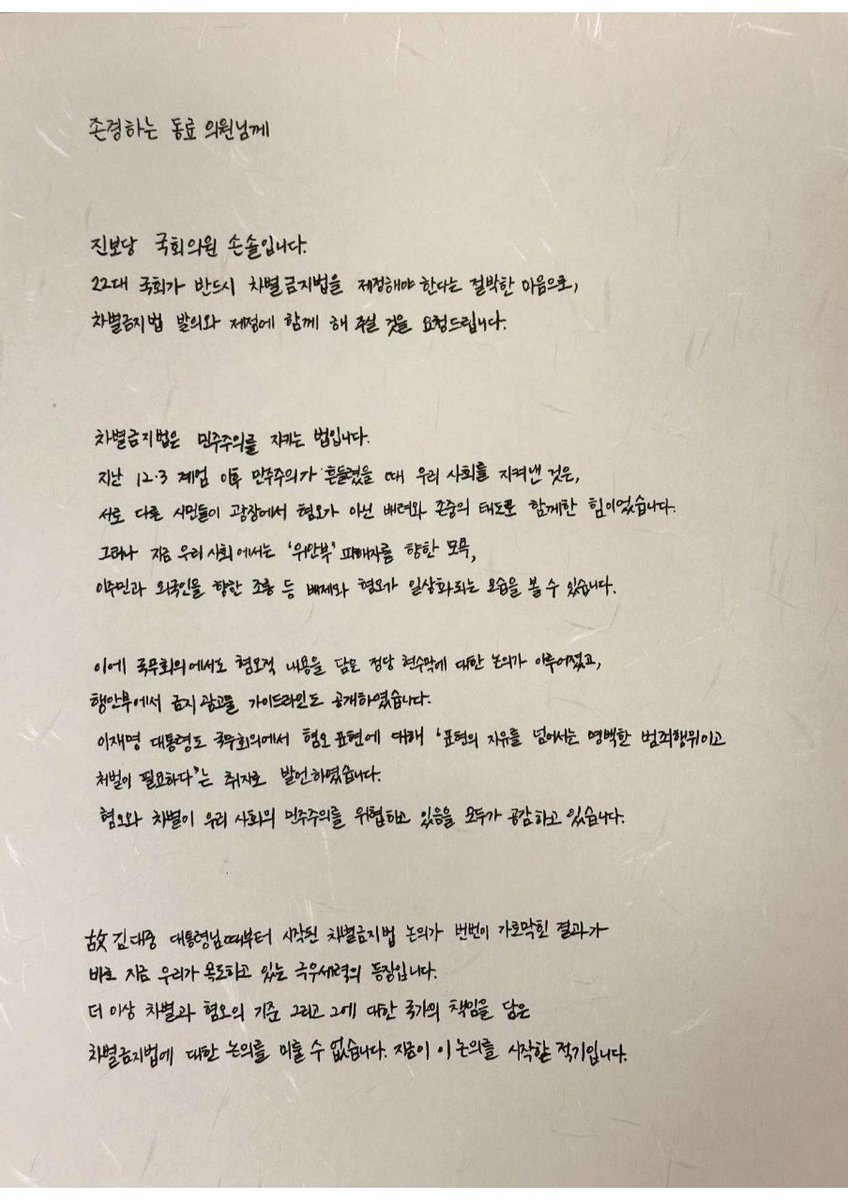 존경하는 동료 의원님께
진보당 국회의원 손솔입니다.
22대 국회가 반드시 차별금지법을 제정해야 한다는 절박한 마음으로,
차별금지법 발의와 제정에 함께 해 주실 것을 요청드립니다.
차별금지법은 민주주의를 지키는 법입니다.
지난 12·3 계엄 이후 민주주의가 흔들렸을 때 우리 사회를 지켜낸 것은,
서로 다른 시민들이 광장에서 혐오가 아닌 배려와 존중의 태도로 함께한 힘이었습니다.
그러나 지금 우리 사회에서는 '위안부' 피해자를 향한 모욕,
이주민과 외국인을 향한 조롱 등 배제와 혐오가 일상화되는 모습을 볼 수 있습니다.
이에 국무회의에서도 혐오적 내용을 담은 정당 현수막에 대한 논의가 이루어졌고,
행안부에서 금지 광고물 가이드라인도 공개하였습니다.
이재명 대통령도 국무회의에서 혐오 표현에 대해 '표현의 자유를 넘어서는 명백한 범죄행위이고
처벌이 필요하다'는 취지로 발언하였습니다.
혐오와 차별이 우리 사회의 민주주의를 위협하고 있음을 모두가 공감하고 있습니다.
故 김대중 대통령님 때부터 시작된 차별금지법 논의가 번번이 가로막힌 결과가
바로 지금 우리가 목도하고 있는 극우세력의 등장입니다.
더 이상 차별과 혐오의 기준 그리고 그에 대한 국가의 책임을 담은
차별금지법에 대한 논의를 미룰 수 없습니다. 지금이 이 논의를 시작할 적기입니다.